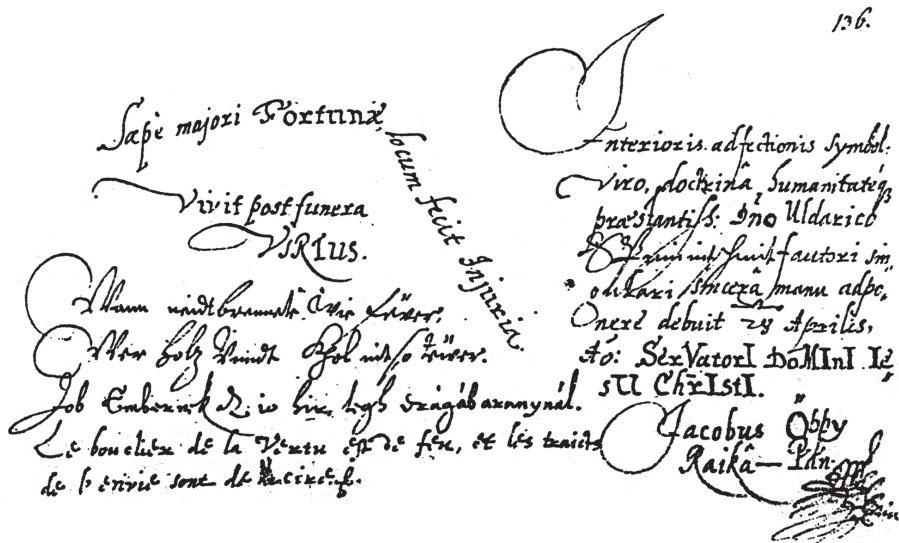 136.
Sæpè majori Fortunæ locum fecit Injuria.
Vivit post funera
VIRtus.
Wann neidt brennete Wie Feẅer,
Wer holz Undt Khol nit so teẅer.
Job Embernek io hir, legh drágáb aranynál.
Le bouclier de la Vertu est de fer, et les traicts
de l'envie sont de cire.
Interioris adfectionis symbol:
viro, doctrinâ, humanitatéq₃
præstantiss: Dn̄o Uldarico
fautori sin
olukari sincerâ manu adpo,,
nere debuit 28 Aprilis,
Aō: SerVatorI DoMInI Ie,,
sU ChrIstI.
Jacobus Öbby
Raikâ — Pan